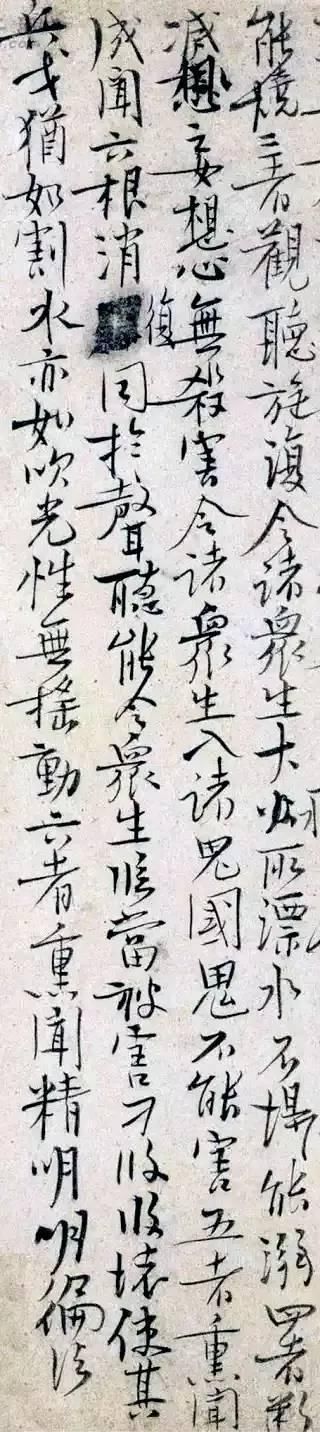 能燒三者觀聽旋復令諸衆生大所漂水不能溺四者斷
滅妄想心無殺害令諸衆生入諸鬼國鬼不能害五者熏聞
成聞六根消復同於聲聽能令衆生臨當被害刀段段壞使其
兵戈猶如割水亦如吹光性無搖動六者熏聞精明明徧法